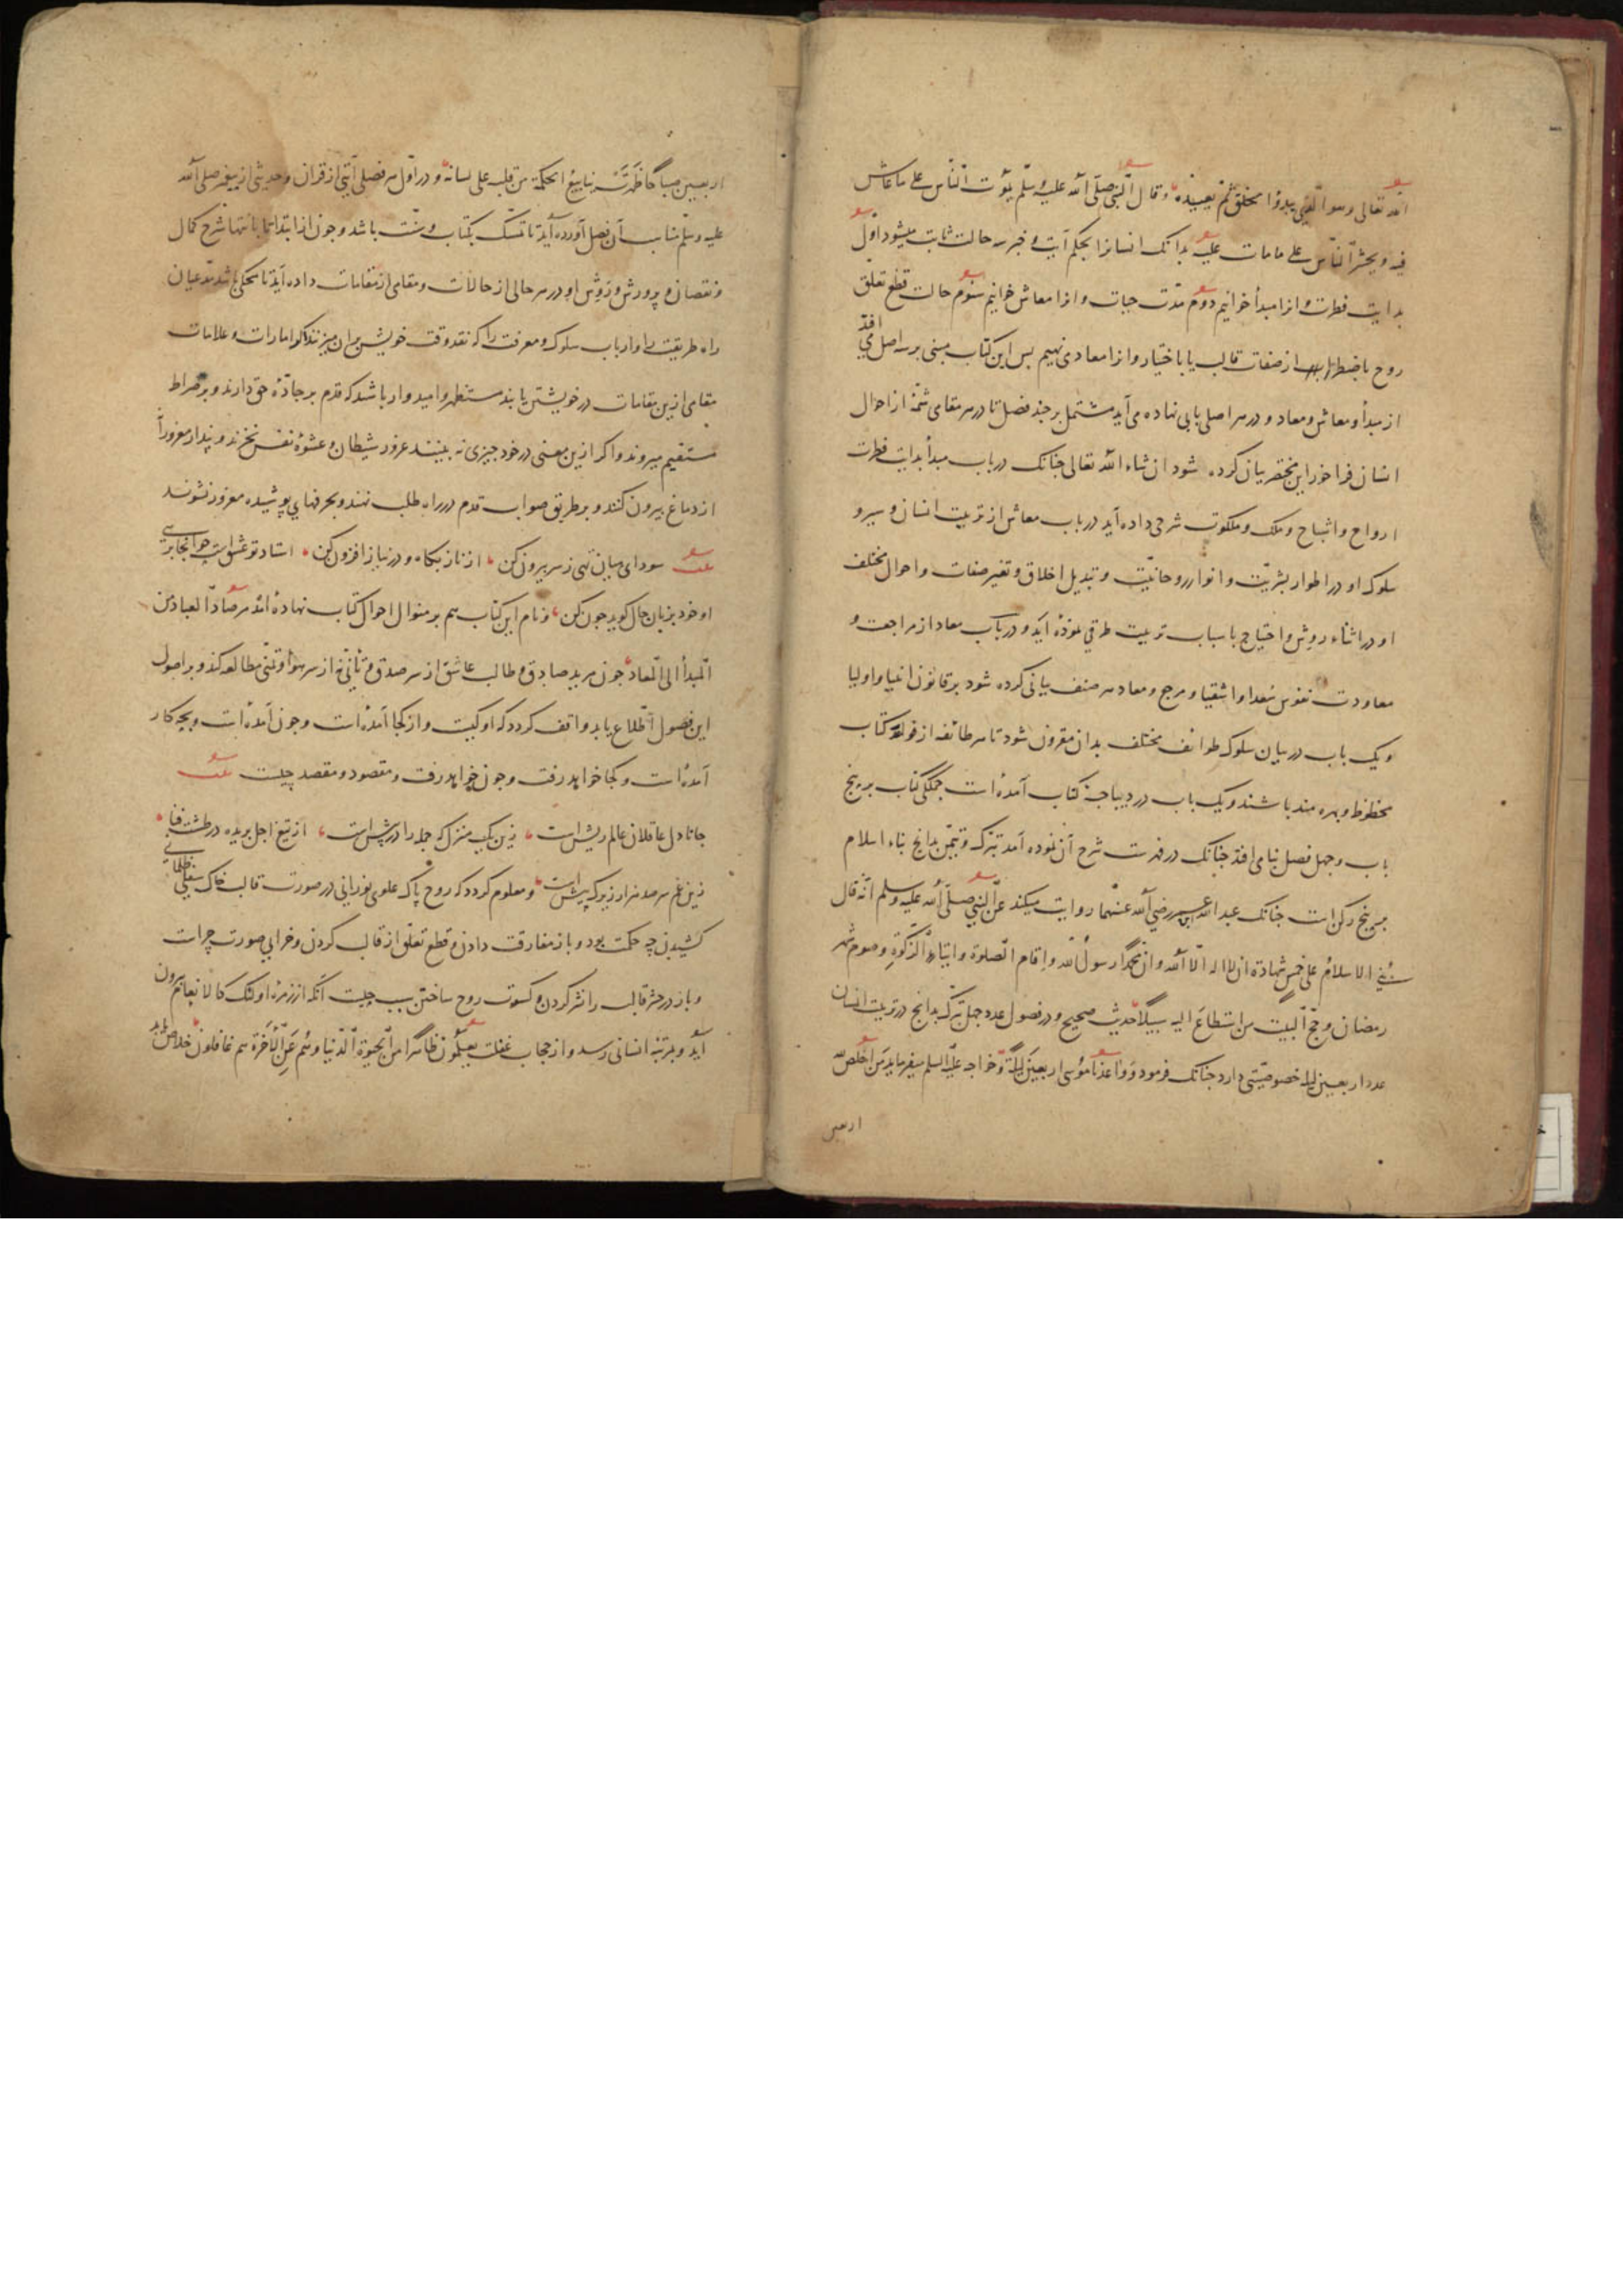 الله تعالی وهو الّذی یبدؤا الخلق ثمّ یعیده وقال النبیّ صلّی الله علیه وسلّم یموت النّاس علی ما عاش
فیه ویحشر النّاس علی ما مات علیه بدانک انسانرا بحکم آیت و خبر سه حالت ثابت میشود اوّل
بدایت فطرت و انرا مبدأ خوانیم دوم مدّت حیات و انرا معاش خوانیم سوم حالت قطع تعلّق
روح باضطرار از صفات قالب یا باختیار و انرا معاد می نهیم بس این کتاب مبنی بر سه اصل می افتد
از مبدأ و معاش و معاد و در هر اصلی بابی نهاده می آید مشتمل بر جند فصل تا در هر مقامی شمّهٔ از احوال
انسان فراخور این مختصر بیان کرده شود ان شاء الله تعالی جنانک در باب مبدأ بدایت فطرت
ارواح و اشباح و ملک و ملکوت شرحی داده آید در باب معاش از تربیت انسان و سیر و
سلوک او در اطوار بشریّت و انوار روحانیّت و تبدیل اخلاق و تغیر صفات و احوال مختلف
او در اثناء روش و احتیاج باسباب تربیت طرقی نموده آید و در باب معاد از مراجعت و
معاودت نفوس سعدا و اشقیا و مرجع و معاد هر صنف بیانی کرده شود بر قانون انبیا و اولیا
و یک باب در بیان سلوک طوائف مختلف بدان مقرون شود تا هر طائفه از فوائد کتاب
محظوظ و بهره مند باشند و یک باب در دیباجهٔ کتاب آمده است جملگی کتاب بر پنج
باب و جهل فصل بنا می افتد جنانک در فهرست شرح آن نموده آمد تبرّک و تیمّن بدانج بناء اسلام
بر پنج رکن است جنانک عبدالله بن عمر رضی الله عنهما روایت میکند عن النبیّ صلّی الله علیه وسلم انّه قال
بنی الاسلام علی خمس شهادة ان لا اله الّا الله وانّ محمّدا رسول الله و اقام الصّلوة وایتاء الزّکوة وصوم شهر
رمضان وحجّ البیت من استطاع الیه سبیلا حدیث صحیح و در فصول عدد جهل تبرّک بدانج در تربیت انسان
عدد اربعین لیله خصوصیّتی دارد جنانک فرمود وواعدنا موسی اربعین لیلة و خواجه علیه السلم میفرماید من اخلص لله
اربعین
اربعین صباحا ظهرت ینابیع الحکمة من قلبه علی لسانه و در اوّل هر فصلی آیتی از قران و حدیثی از پیغمبر صلّی الله
علیه وسلّم مناسب آن فصل آورده آید تا تمسّک بکتاب و سنّت باشد و جون از ابتدا تا بانتها شرح کمال
و نقصان و پرورش و روش او در هر حالی از حالات و مقامی از مقامات داده آید تا محکّی باشد مدّعیان
راه طریقت را و ارباب سلوک و معرفت را که نقد وقت خویش بر ان میزنند اکر امارات و علامات
مقامی ازین مقامات در خویشتن یابند مستظهر و امیدوار باشند که قدم بر جادّهٔ حق دارند و بر صراط
مستقیم میروند و اکر ازین معنی در خود جیزی نه بینند غرور شیطان و عشوهٔ نفس نخرند و پندار مغرور
از دماغ بیرون کنند و بر طریق صواب قدم در راه طلب نهند و بحرفهای پوشیده مغرور نشوند
سودای میان تهی ز سر بیرون کن از ناز بکاه و در نیاز افزون کن استاد تو عشق است جو انجا برسی
او خود بزبان حال کوید جون کن و نام این کتاب هم بر منوال احوال کتاب نهاده اند مرصاد العباد من
المبدأ الی المعاد جون مرید صادق و طالب عاشق از سر صدق و تأنّی نه از سر هوا و تمنّی مطالعه کند و بر اصول
این فصول اطّلاع یابد واقف کردد که او کیست و از کجا آمده است و جون آمده است و بچه کار
آمده است و کجا خواهد رفت و جون خواهد رفت و مقصود و مقصد چیست
جانا دل عاقلان عالم ریش است زین یک منزل که جمله را در پیش است از تیغ اجل بریده در طشت فنا
زین غم سر صد هزار زیرک پیش است و معلوم کردد که روح پاک علوی نورانی در صورت قالب خاک سفلی ظلمانی
کشیدن چه حکمت بود و باز مفارقت دادن و قطع تعلّق از قالب کردن و خرابی صورت چراست
و باز در حشر قالب را نشر کردن و کسوت روح ساختن سبب چیست آنکه از زمره اولئک کالانعام بیرون
آید و بمرتبه انسانی رسد و از حجاب غفلت یعلمون ظاهرا من الحیوة الدّنیا وهم عن الآخرة هم غافلون خلاص یابد